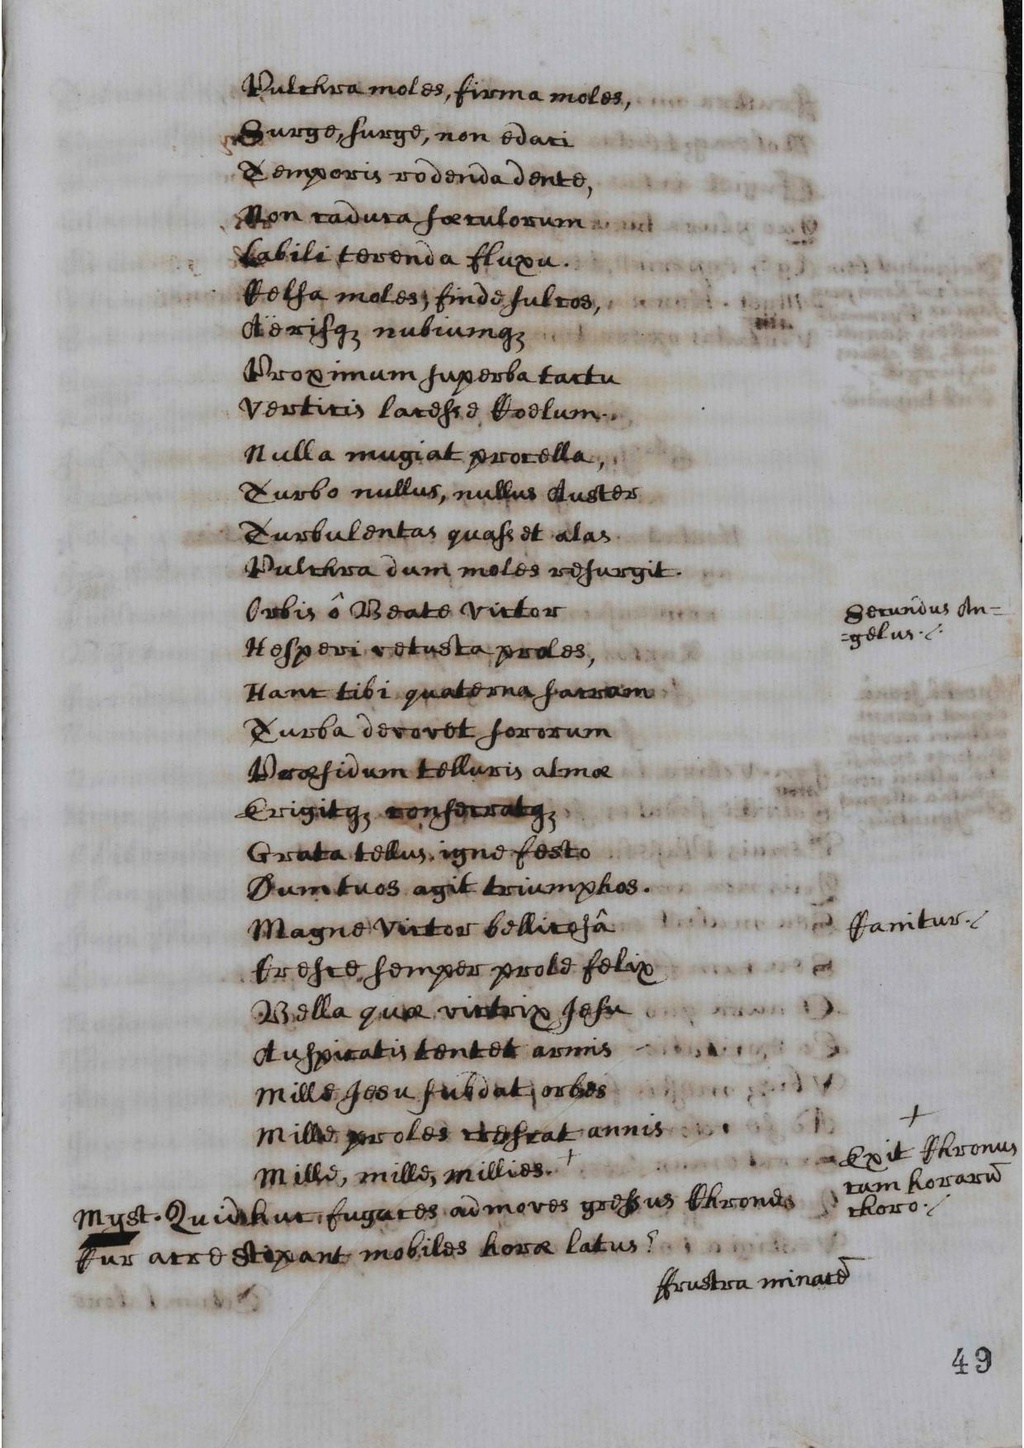 Pulchra moles, firma moles,
Surge, surge, non edaci
Temporis rodenda dente,
Non caduca sæculorum
Labili terenda fluxu.
Celsa moles, finde sulcos,
Aërisq; nubiumq;
Proximum superba tactu
Verticis lacesse Coelum.
Nulla mugiat procella,
Turbo nullus, nullus Auster
Turbulentas quasset alas
Pulchra dum moles resurgit.
Orbis ô Beate Victor
Secundus An=
=gelus.
Hesperi vetusta proles,
Hanc tibi quaterna sacram
Turba devovet sororum
Præsidum telluris almæ
Erigitq; consecratq;
Grata tellus igne festo
Dum tuos agit triumphos.
Magne Victor bellicosâ
Canitur.
Cresce semper prole felix
Bella quæ victrix Jesu
Auspicatis tentet armis
Mille Jesu subdat orbes
Mille proles crescat annis
Mille, mille, millies. +
+
Exit Chronus
cum horarū
choro.
Myst. Quid huc fugaces admoves gressus Chrone
Cur acre stipant mobiles horæ latus?
ffrustra minacē
49